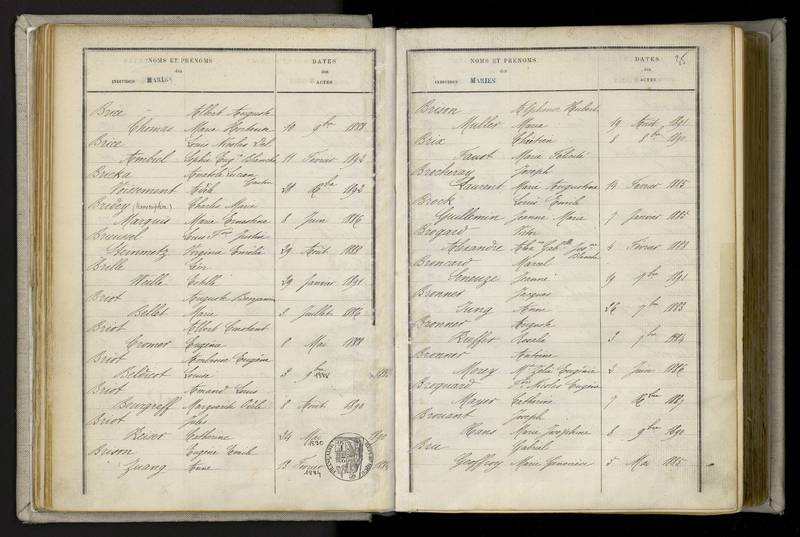 NOMS ET PRÉNOMS DATES
des des
INDIVIDUS MARIÉS ACTES
Brice Albert Auguste
Thomas Marie Hortense 10 9bre 1888
Brice Louis Nicolas
Sophie Eugie Blanche 11 Février 1892
Bricka Aimable Lucien
Gaston
Voirement 28 Xbre 1892
Bridey (transcription) Charles Marie
Marquis Marie Ernestine 8 Juin 1886
Louis Justin
Steinmetz Virginie Emilie 29 Août 1888
Brille Léon
Weille 29 Janvier 1891
Briot Auguste Benjamin
Bellot Marie 3 Juillet 1886
Briot Albert Constant
Cromer Eugénie 8 Mai 1889
Briot Ambroise Eugène
Louise 3 9bre 1888
Briot Amand Louis
Bourgroff Marguerite 8 Août 1890
Briot Jules
Keiser Catherine 24 Mai 1890
Brison Eugène Emile
Zuang Anne 13 Février 1884
26
NOMS ET PRÉNOMS DATES
des des
INDIVIDUS MARIÉS ACTES
Brison Alphonse Hubert
Muller Marie 19 Août 1891
Brix Christian
Faust Marie 8 8bre 1890
Brocheray Joseph
Laurent Marie Augustine 14 Février 1885
Brock Louis Emile
Guillemin Jeanne Marie 7 Janvier 1885
Brogard Victor
Alexandre 4 Février 1888
Blanche
Broncard Marcel
Jeanne 19 9bre 1891
Bronner Jacques
Jung Anne 26 7bre 1883
Bronner Auguste
Kieffer Rosalie 3 7bre 1884
Bronner Antoine
Morey Mie Zélie Eugénie 3 Juin 1886
Broquard Nicolas Eugène
Mayer Catherine 7 Xbre 1887
Brouant Joseph
Hans Marie Joséphine 8 9bre 1890
Bru Gabriel
Geoffroy Marie Geneviève 5 Mai 1885